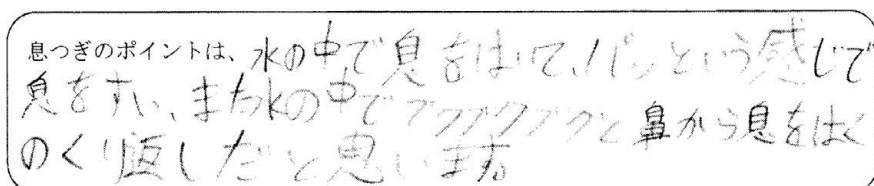 息つぎのポイントは、水の中で息をはいて、パッという感じで
息をすい、また水の中でブクブクブクと鼻から息をはく
のくり返しだと思います。